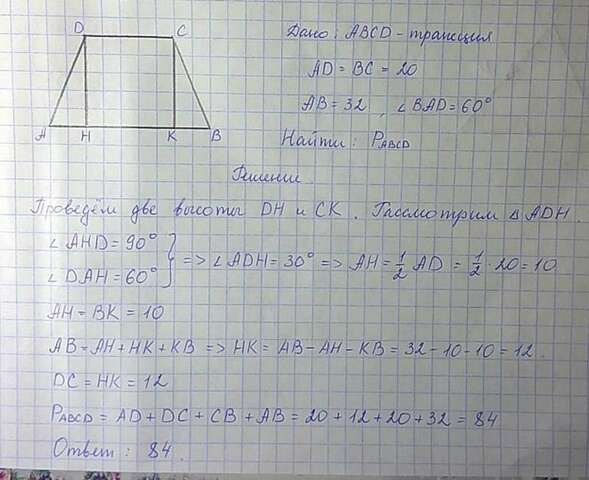 D C
A H K B
Дано: ABCD - трапеция
AD = BC = 20
AB = 32, ∠BAD = 60°
Найти: P_ABCD
Решение.
Проведём две высоты DH и CK. Рассмотрим △ADH.
∠AHD = 90°
∠DAH = 60°
} => ∠ADH = 30° => AH = 1/2 AD = 1/2 · 20 = 10
AH = BK = 10
AB = AH + HK + KB => HK = AB - AH - KB = 32 - 10 - 10 = 12.
DC = HK = 12
P_ABCD = AD + DC + CB + AB = 20 + 12 + 20 + 32 = 84
Ответ: 84.